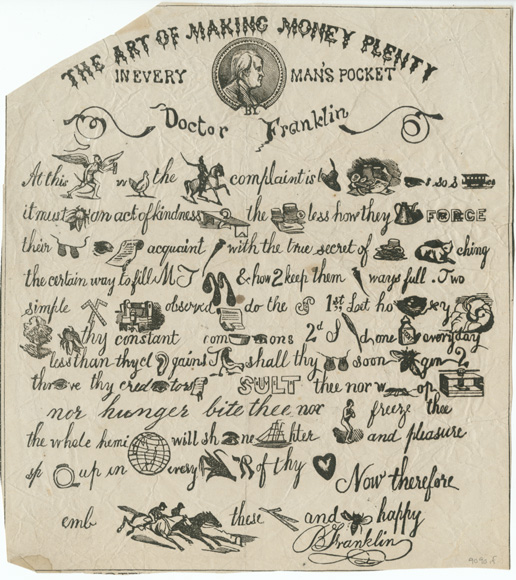 THE ART OF MAKING MONEY PLENTY
IN EVERY MAN'S POCKET
BY
Doctor Franklin
At this w the complaint is t s so s
it must an act of kindness the less how they FORCE
their acquaint with the true secret of ching
the certain way to fill M T & how 2 keep them ways full. Two
simple observd do the 1st Let ho sey
thy constant com ons 2d S d one everyday
less than thy cl gains shall thy soon gin 2
thr ve thy cred tors SULT thee nor w op
nor hunger bite thee nor freeze thee
the whole hemi will sh ne hter and pleasure
sp up in every R of thy Now therefore
emb these and happy
B Franklin